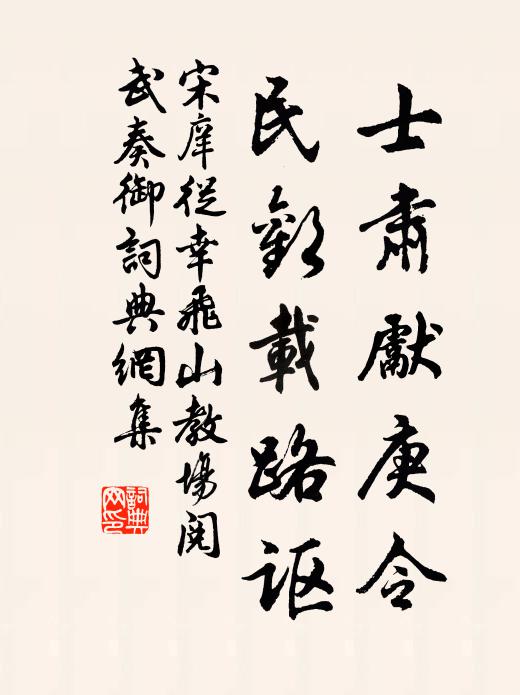 士肅獻庚令
民歡載路謳
宋庠從幸飛山教場閱
武奏御詞典網集
詞典网印